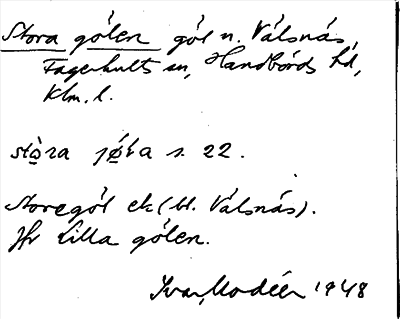 Stora gölen göl n. Välsnäs,
Fagerhults sn, Handbörds hd,
Klm. l.
s. 22.
Storegöl ek (bl. Välsnäs).
Jfr Lilla gölen.
Ivar Modéer 1948